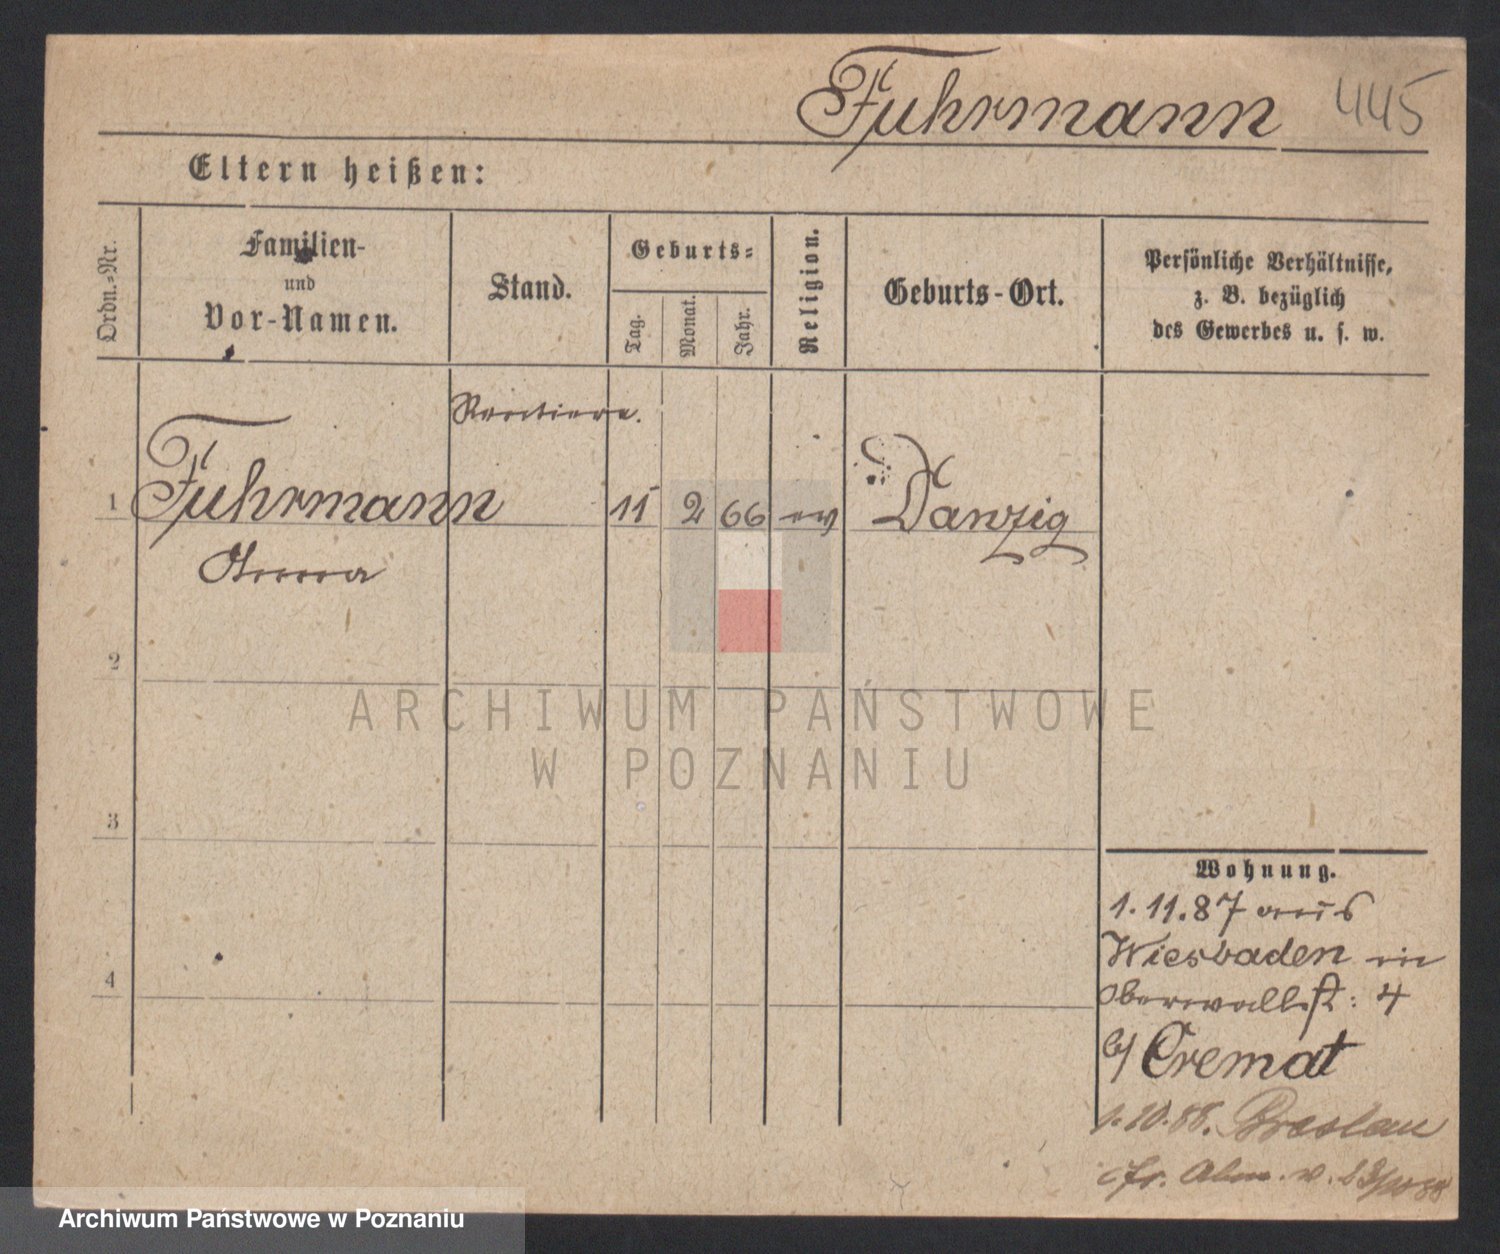 Fuhrmann 445
Eltern heißen:
Ordn.-Nr.
Familien-
und
Vor-Namen.
Stand.
Geburts-
Tag.
Monat.
Jahr.
Religion.
Geburts-Ort.
Persönliche Verhältnisse,
z. B. bezüglich
des Gewerbes u. s. w.
Rentiere.
1 Fuhrmann 11 2 66 ev Danzig
Anna
2
ARCHIWUM PAŃSTWOWE
W POZNANIU
3
Wohnung.
1.11.87 aus
Wiesbaden in
4
Oberwallst: 4
b/ Cremat
1.10.88. Breslau
Abm. v.
Archiwum Państwowe w Poznaniu